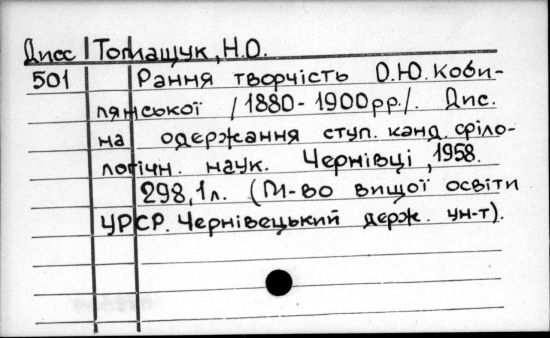 Дисс Томащук, Н.О.
501 Рання творчість О.Ю. Коби-
лянської /1880-1900рр./. Дис.
на одержання ступ. канд. філо-
логічн. наук. Чернівці, 1958.
298,1л. (М-во вищої освіти
УРСР. Чернівецький держ. ун-т).